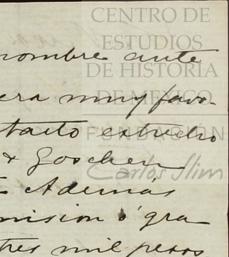 CENTRO DE
ESTUDIOS
DE HISTORIA
DE MEXICO
FUNDACIÓN
Carlos Slim
nombre ante
era muy favo-
estrecho
& Goschen
Además
mision ó gra
tres mil pesos